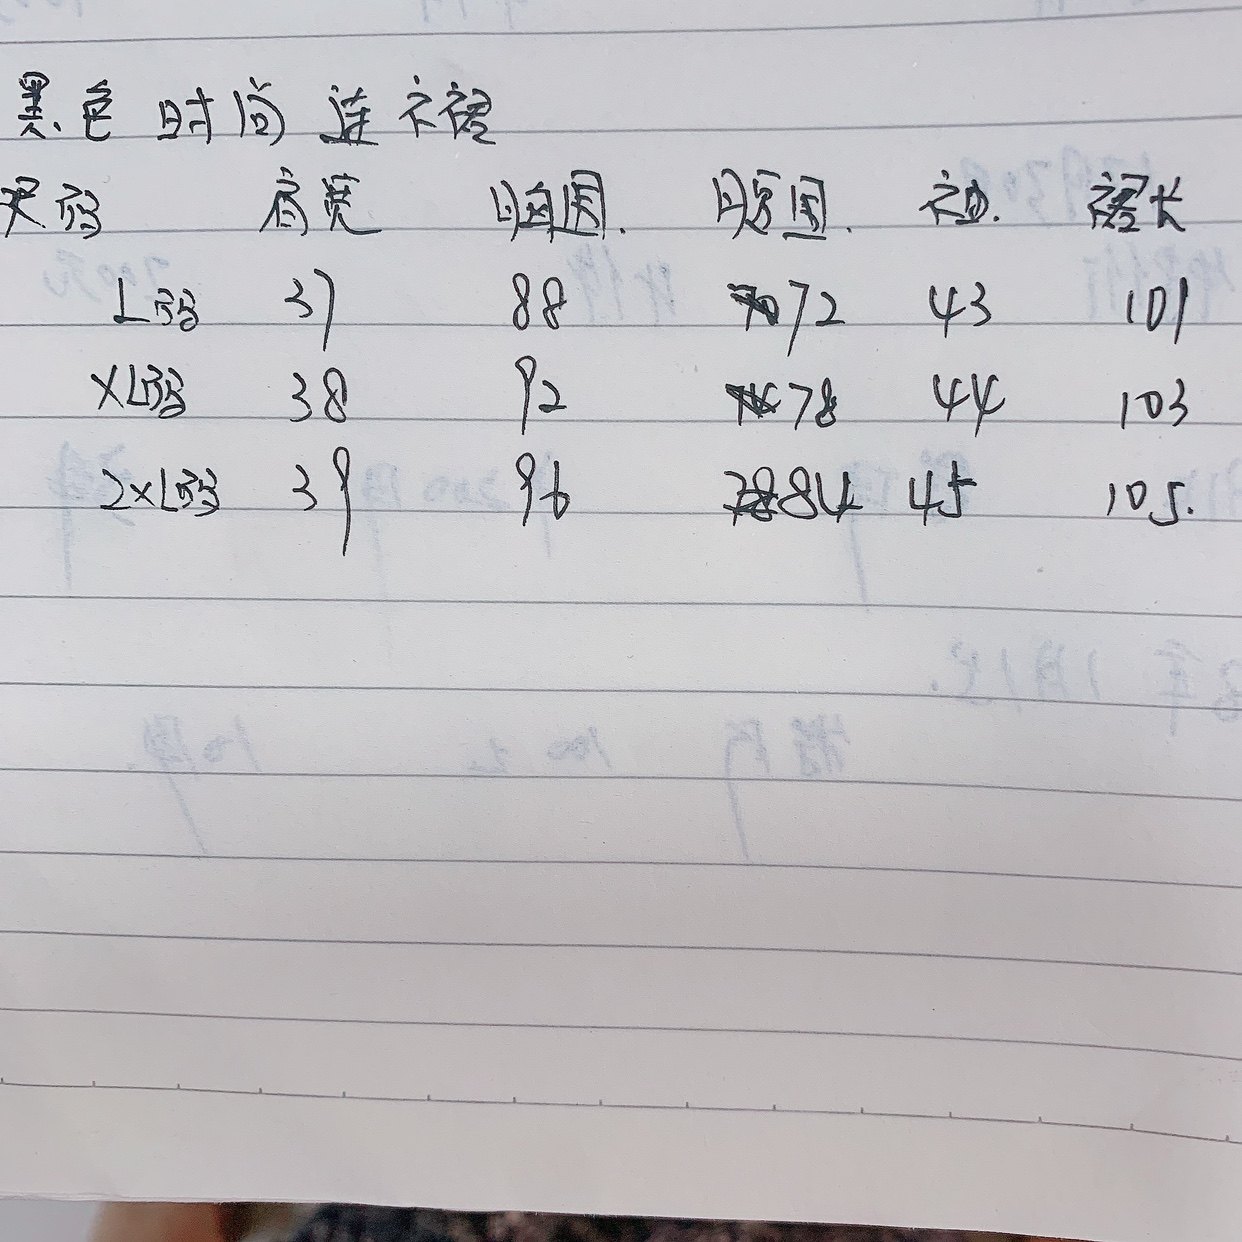 黑色时间连衣裙
尺码 肩宽 胸围. 腰围. 袖. 裙长
L码 37 88 72 43 101
XL码 38 92 78 44 103
2XL码 39 96 84 45 105.